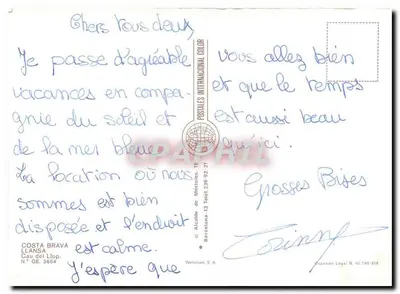 Chers tous deux,
Je passe d'agréable
vacances en compa-
gnie du soleil et
de la mer bleue.
La location où nous
sommes est bien
disposée et l'endroit
est calme.
J'espère que
vous allez bien
et que le temps
est aussi beau
qu'ici.
Grosses Bises
Corinne
COSTA BRAVA
LLANSA
Cau del Llop.
N.º GE. 5664
POSTALES INTERNACIONAL COLOR
Barcelona-13
Depósito Legal B.